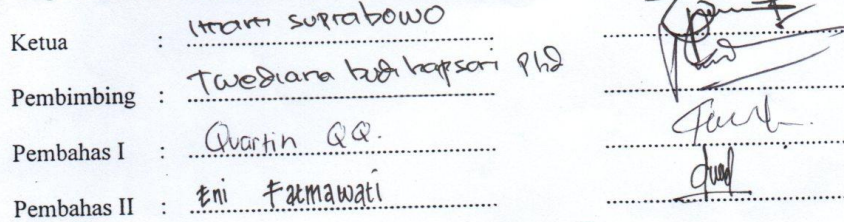 Ketua : Imam suprabowo
Pembimbing : Twediana budi hapsari PhD
Pembahas I : Quartin QQ.
Pembahas II : Eni Fatmawati